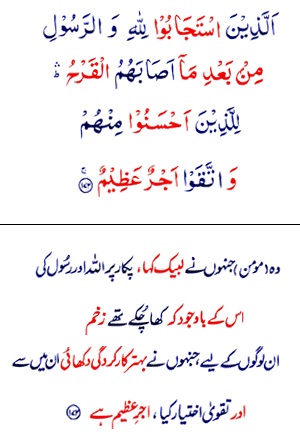 اَلَّذِيْنَ اسْتَجَابُوْا لِلّٰهِ وَ الرَّسُوْلِ
مِنْۢ بَعْدِ مَاۤ اَصَابَهُمُ الْقَرْحُ ؕۛ
لِلَّذِيْنَ اَحْسَنُوْا مِنْهُمْ
وَ اتَّقَوْا اَجْرٌ عَظِيْمٌ ۚ﴿۱۷۲﴾
وہ (مومن) جنہوں نے لبیک کہا، پکار پر اللہ اور رسُول کی
اس کے باوجود کہ کھا چُکے تھے زخم
ان لوگوں کے لیے جنہوں نے بہتر کارکردگی دکھائی ان میں سے
اور تقویٰ اختیار کیا، اجرِ عظیم ہے ﴿۱۷۲﴾